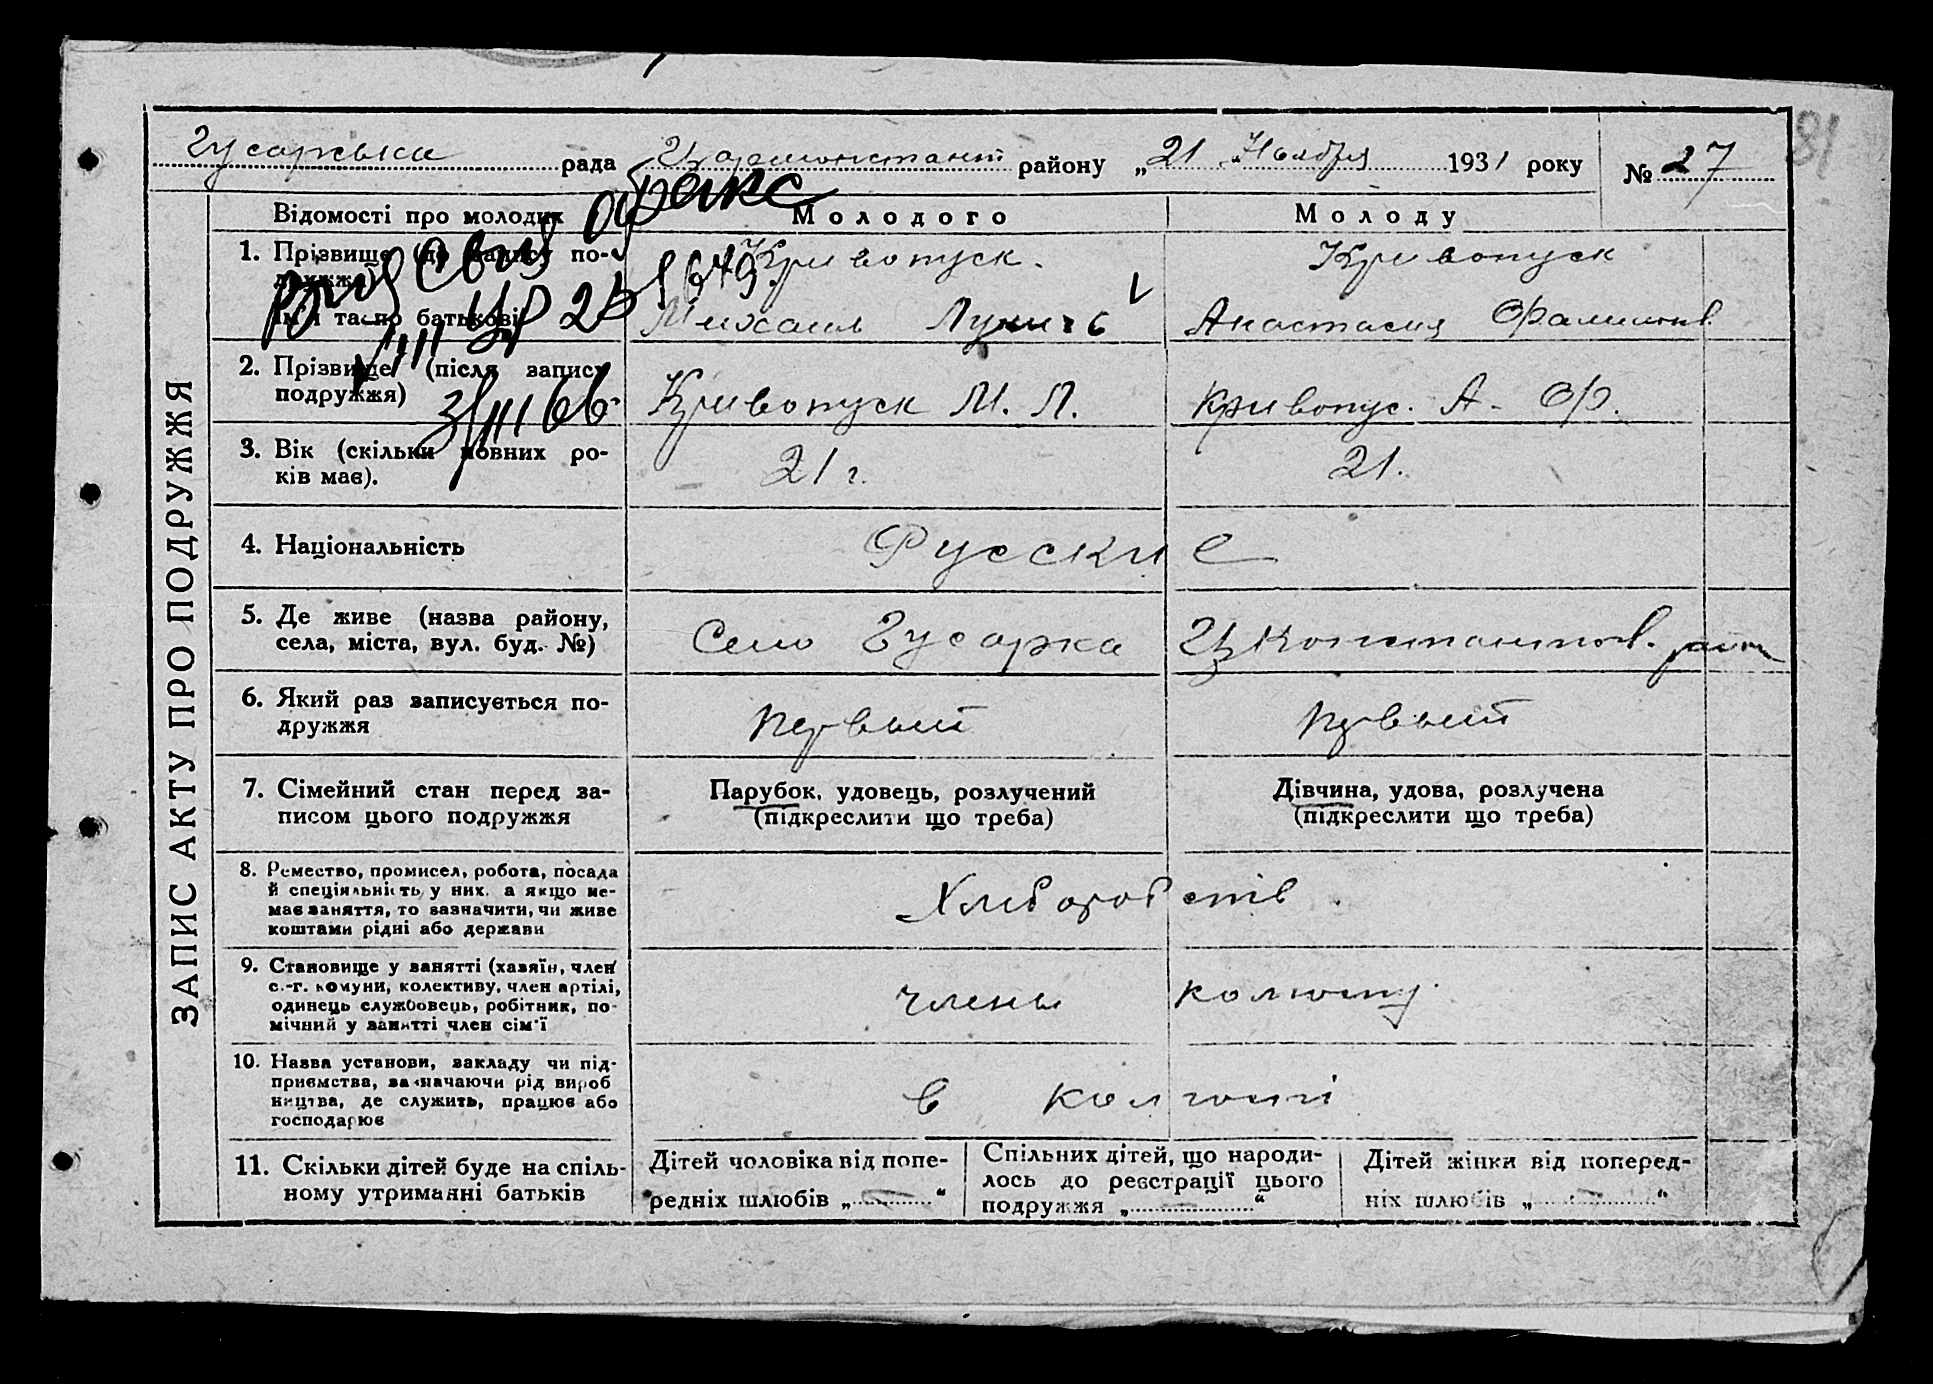 81
Гусарська рада Царьконстант району „21 Ноября 1931 року № 27
Відомості про молодих Молодого Молоду
ЗАПИС АКТУ ПРО ПОДРУЖЖЯ
1. Прізвище (до запису по- Кривопуск. Кривопуск
дружжя)
Ім'я та по батькові Михаил Лукич Анастасия
2. Прізвище (після запису
подружжя) Кривопуск М. Л. Кривопус. А. Ф.
3. Вік (скільки повних ро-
ків має). 21 г. 21.
4. Національність Русские
5. Де живе (назва району,
села, міста, вул. буд. №) Село Гусарка Ц Константинов. район
6. Який раз записується по-
дружжя первый первый
7. Сімейний стан перед за- Парубок, удовець, розлучений Дівчина, удова, розлучена
писом цього подружжя (підкреслити що треба) (підкреслити що треба)
8. Ремество, промисел, робота, посада
й спеціяльність у них, а якщо не-
має заняття, то зазначити, чи живе
коштами рідні або держави
9. Становище у занятті (хазяїн, член
с.-г. комуни, колективу, член артілі,
одинець службовець, робітник, по-
мічний у занятті член сім'ї члены
10. Назва установи, закладу чи під-
приємства, зазначаючи рід вироб
ництва, де служить, працює або
господарює в
11. Скільки дітей буде на спіль-
ному утриманні батьків
Дітей чоловіка від попе-
редніх шлюбів „ “
Спільних дітей, що народи-
лось до реєстрації цього
подружжя „ “
Дітей жінки від поперед-
ніх шлюбів „ “